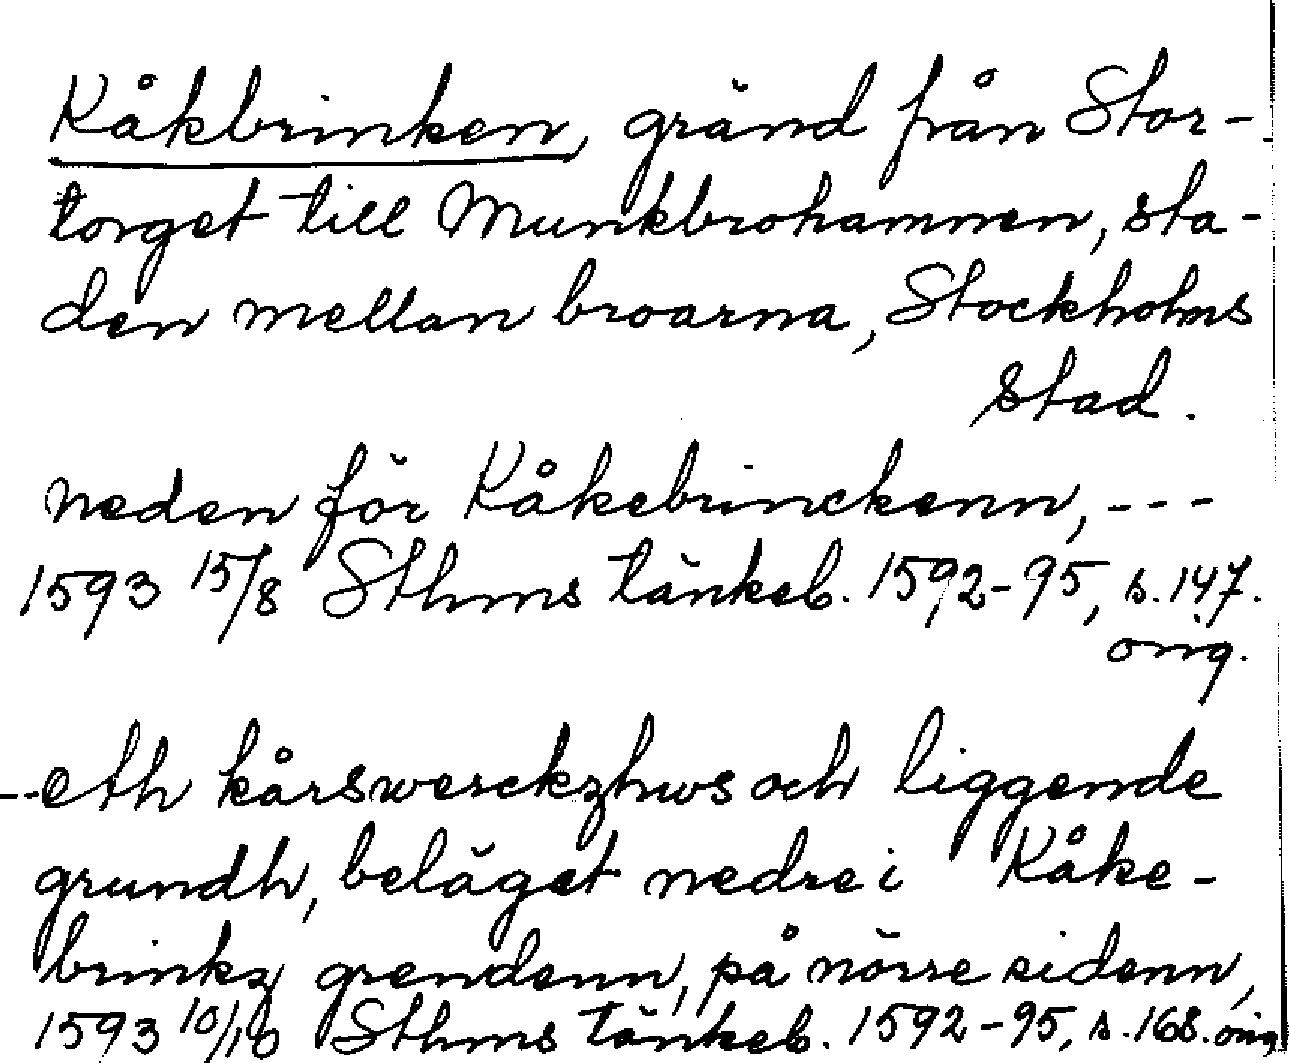 Kåkbrinken, gränd från Stor-
torget till Munkbrohamnen, sta-
den mellan broarna, Stockholms
stad.
neden för Kåkebrinckenn, - - -
1593 15/8 Sthms tänkeb. 1592-95, s. 147.
orig.
--eth kårswerckzhws och liggende
grundh, beläget nedre i Kåke-
brinkz grendenn, på nörre sidenn,
1593 10/10 Sthms tänkeb. 1592-95, s. 168. orig.